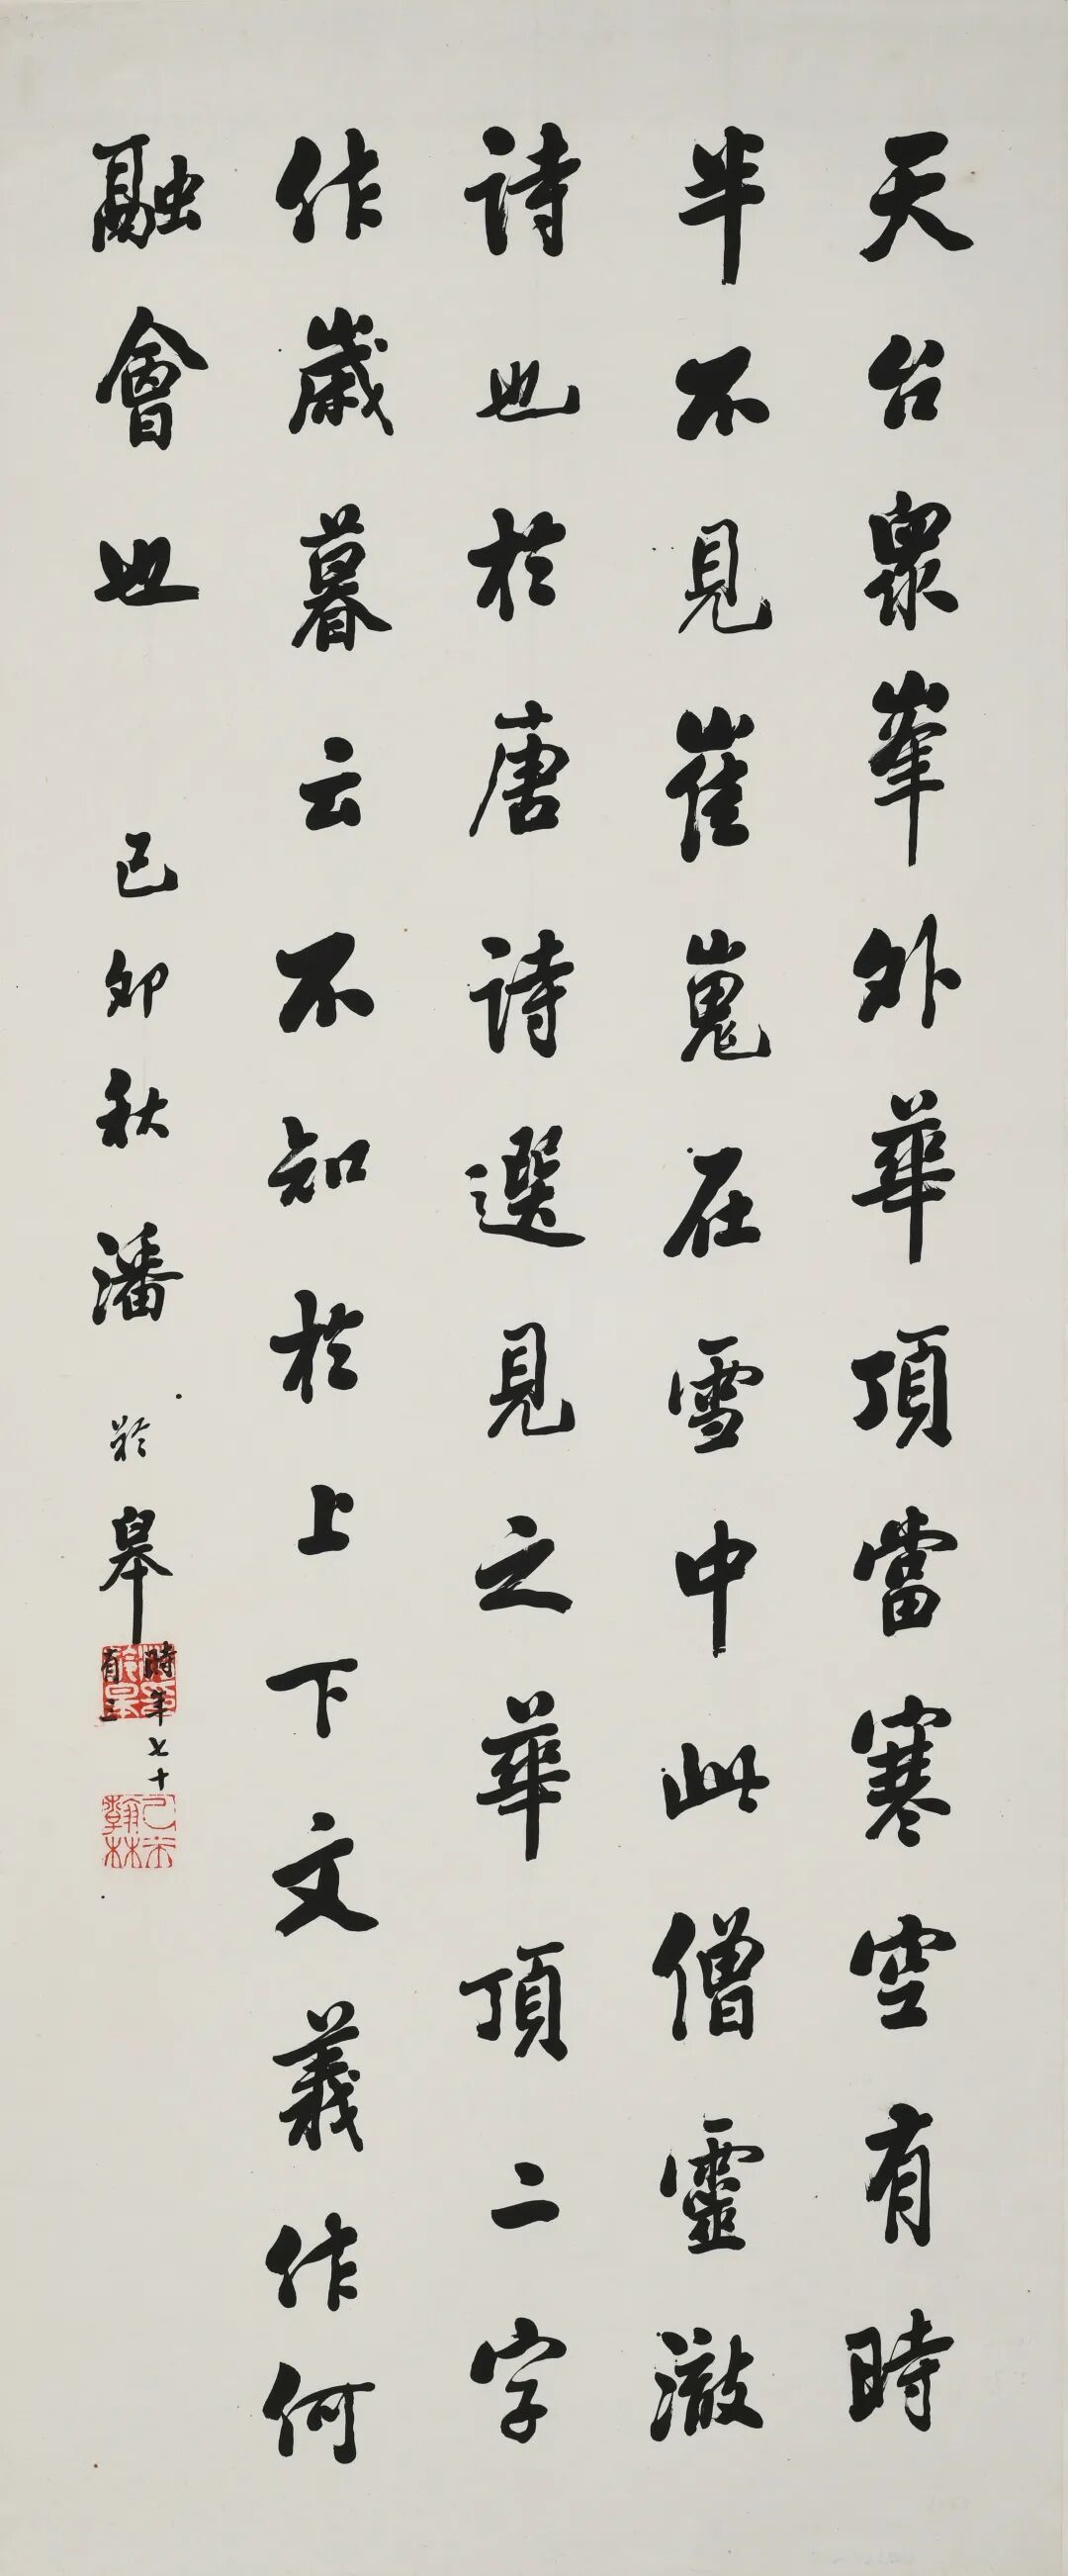 天台眾峯外華頂當寒空有時
半不見崔嵬在雪中此僧靈澈
詩也於唐詩選見之華頂二字
作歲暮云不知於上下文義作何
融會也
己卯秋潘齡皋
時年七十
有三
乙未
翰林